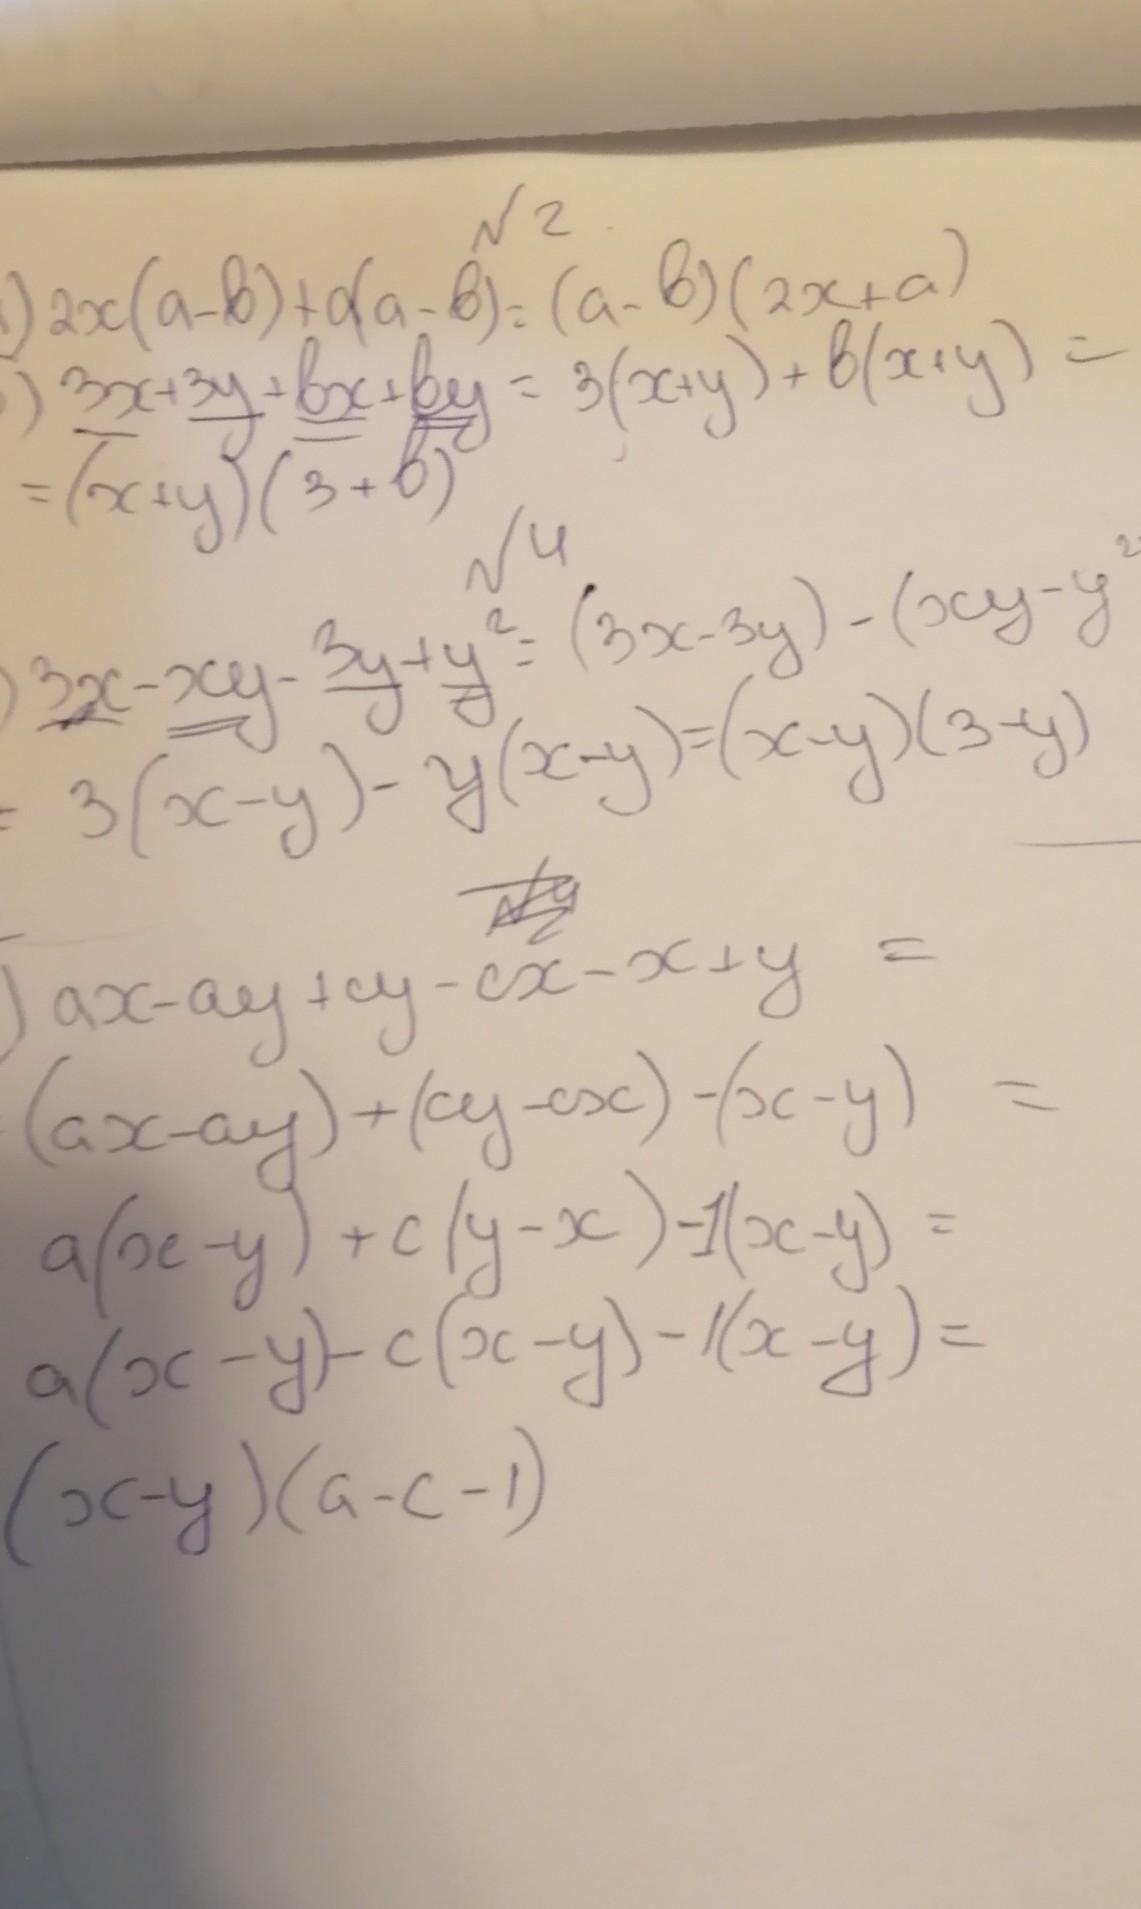 №2
) 2x(a-b)+a(a-b)=(a-b)(2x+a)
) 3x+3y+bx+by = 3(x+y)+b(x+y) =
= (x+y)(3+b)
№4
) 3x-xy-3y+y²= (3x-3y)-(xy-y²
= 3(x-y)-y(x-y)=(x-y)(3-y)
) ax-ay+cy-cx-x+y =
(ax-ay)+(cy-cx)-(x-y) =
a(x-y)+c(y-x)-1(x-y) =
a(x-y)-c(x-y)-1(x-y)=
(x-y)(a-c-1)